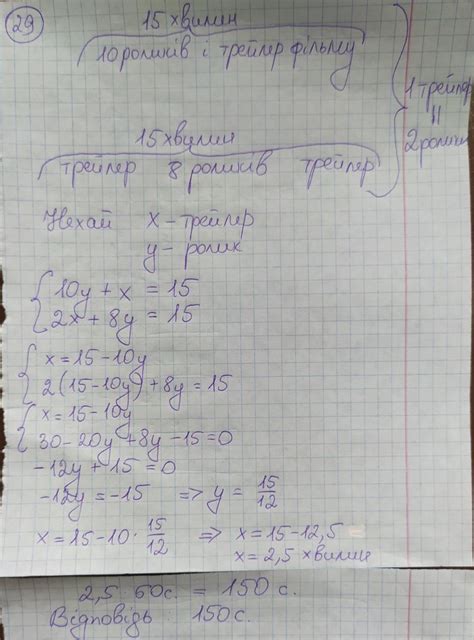 29
15 хвилин
10 роликів і трейлер фільму
15 хвилин
трейлер 8 роликів трейлер
1 трейлер
=
2 ролики
Нехай x – трейлер
y – ролик
10y + x = 15
2x + 8y = 15
x = 15 - 10y
2(15 - 10y) + 8y = 15
x = 15 - 10y
30 - 20y + 8y - 15 = 0
-12y + 15 = 0
-12y = -15 => y = 15/12
x = 15 - 10 · 15/12 => x = 15 - 12,5
x = 2,5 хвилин
2,5 · 60с. = 150 с.
Відповідь : 150с.